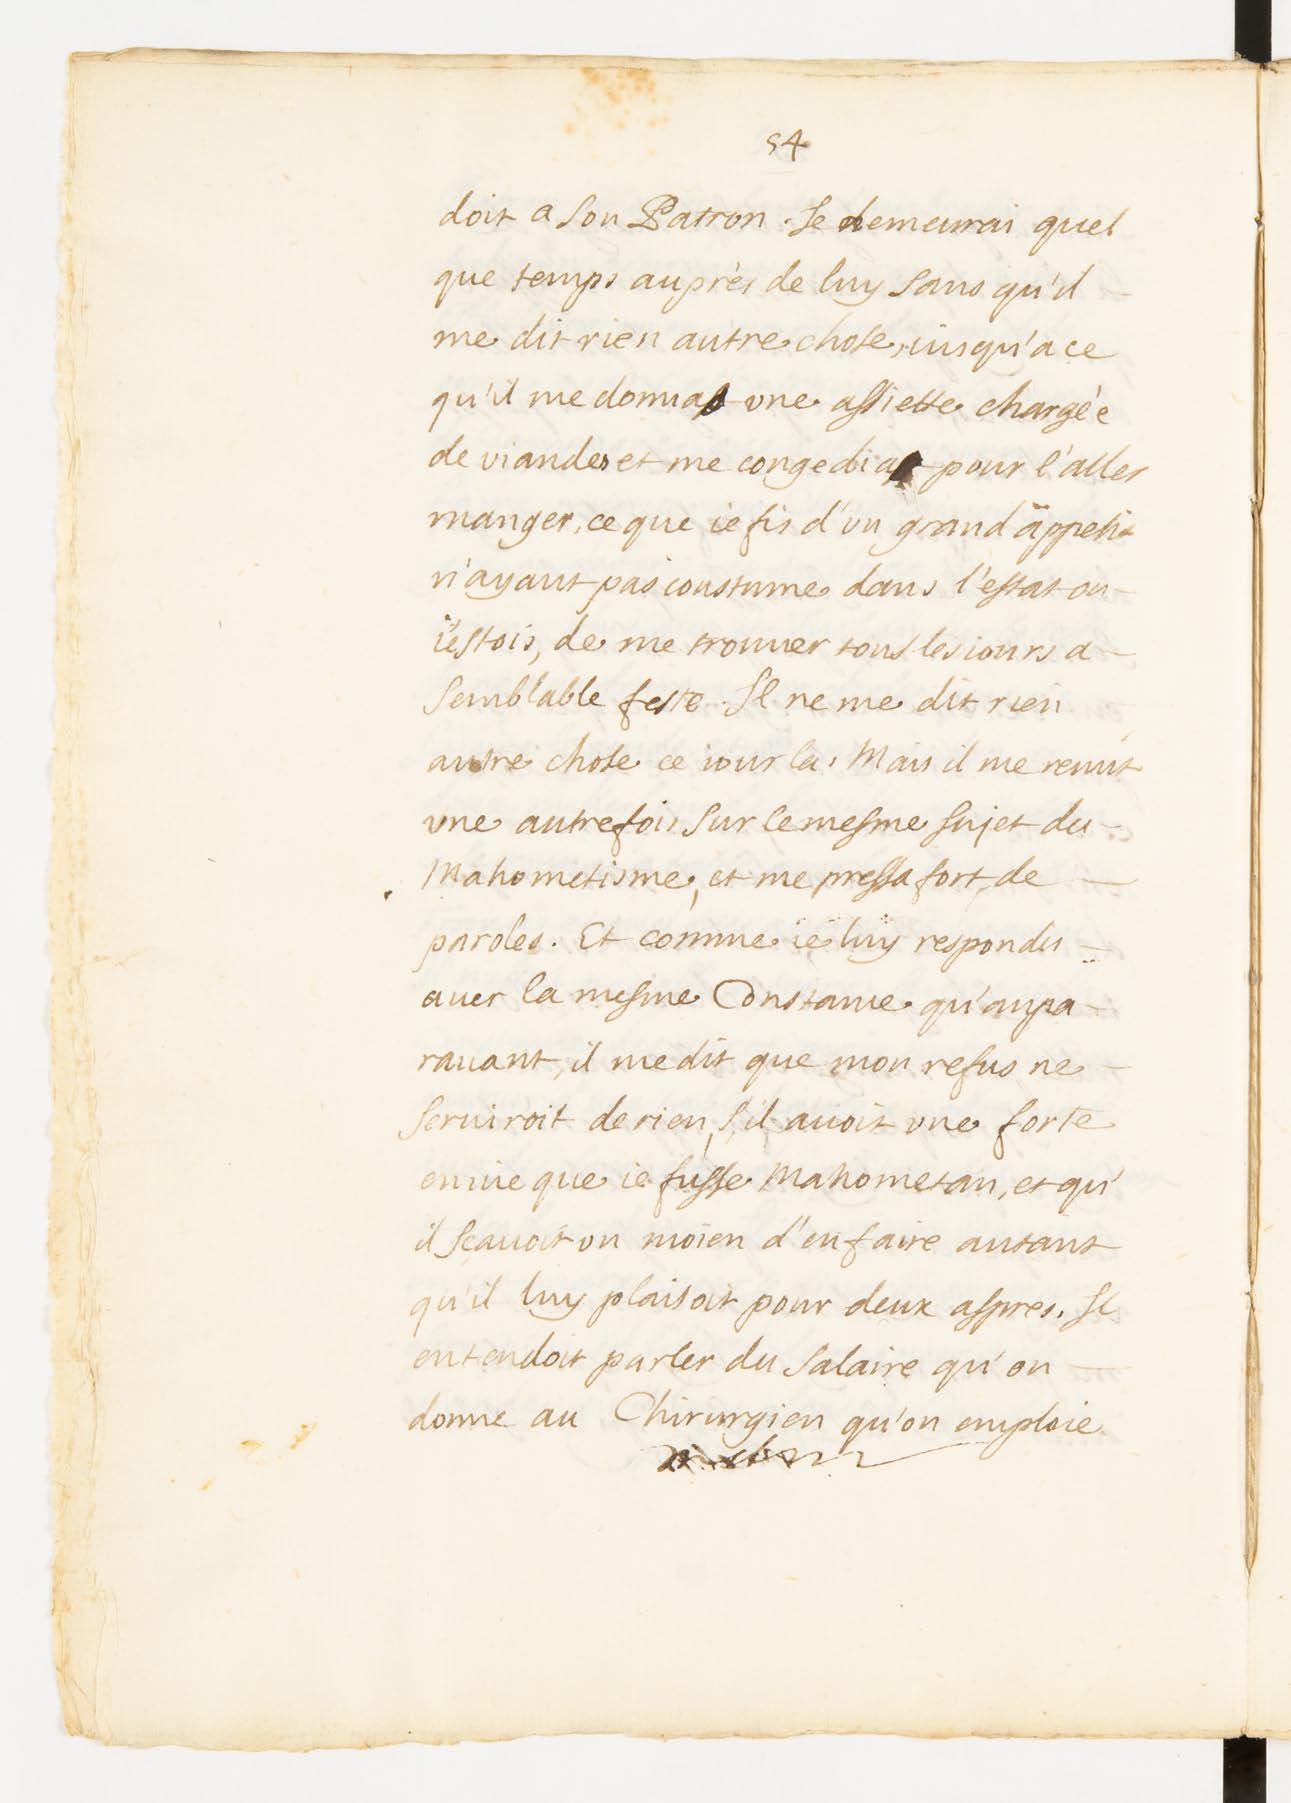 54
doit a son Patron. Je demeurai quel
que temps auprès de luy sans qu'il
me dit rien autre chose, iusqu'a ce
qu'il me donna une assiette chargée
de viandes et me congedia pour l'aller
manger, ce que ie fis d'un grand äppetit
n'ayant pas coustume dans l'estat ou
i'estois, de me trouuer tous les iours a
semblable feste. Il ne me dit rien
autre chose ce iour la, Mais il me remit
vne autrefois sur le mesme sujet du
Mahometisme, et me pressa fort, de
paroles. Et comme ie luy respondis
auec la mesme Constance qu'aupa
rauant, il me dit que mon refus ne
seruiroit de rien, s'il auoit vne forte
enuie que ie fusse Mahometan, et qu'
il sçauoit vn moien d'en faire autant
qu'il luy plaisoit pour deux aspres. Il
entendoit parler du salaire qu'on
donne au Chirurgien qu'on emploie